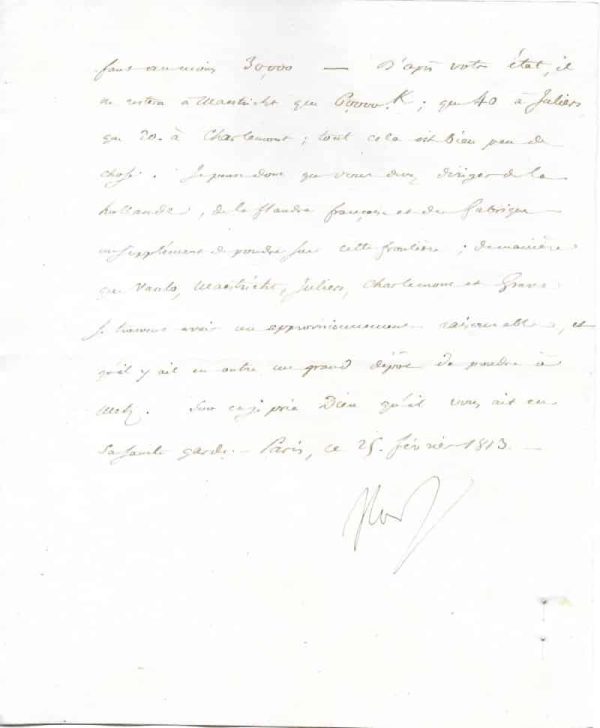 faut au moins 30,000 — D'après votre état, il
ne restera à Maestricht que K ; que 40 à Juliers
que 20. à Charlemont ; tout cela est bien peu de
chose. Je pense donc que vous devez diriger de la
hollande, de la flandre française et de fabrique
un supplément de poudre sur cette frontière ; de manière
que Vanlo, Maestricht, Juliers, Charlemont et Grave
se trouvent avoir un approvisionnement raisonnable, et
qu'il y ait en outre un grand dépôt de poudre à
Metz. Sur ce, je prie Dieu qu'il vous ait en
sa sainte garde. — Paris, ce 25. février 1813. —